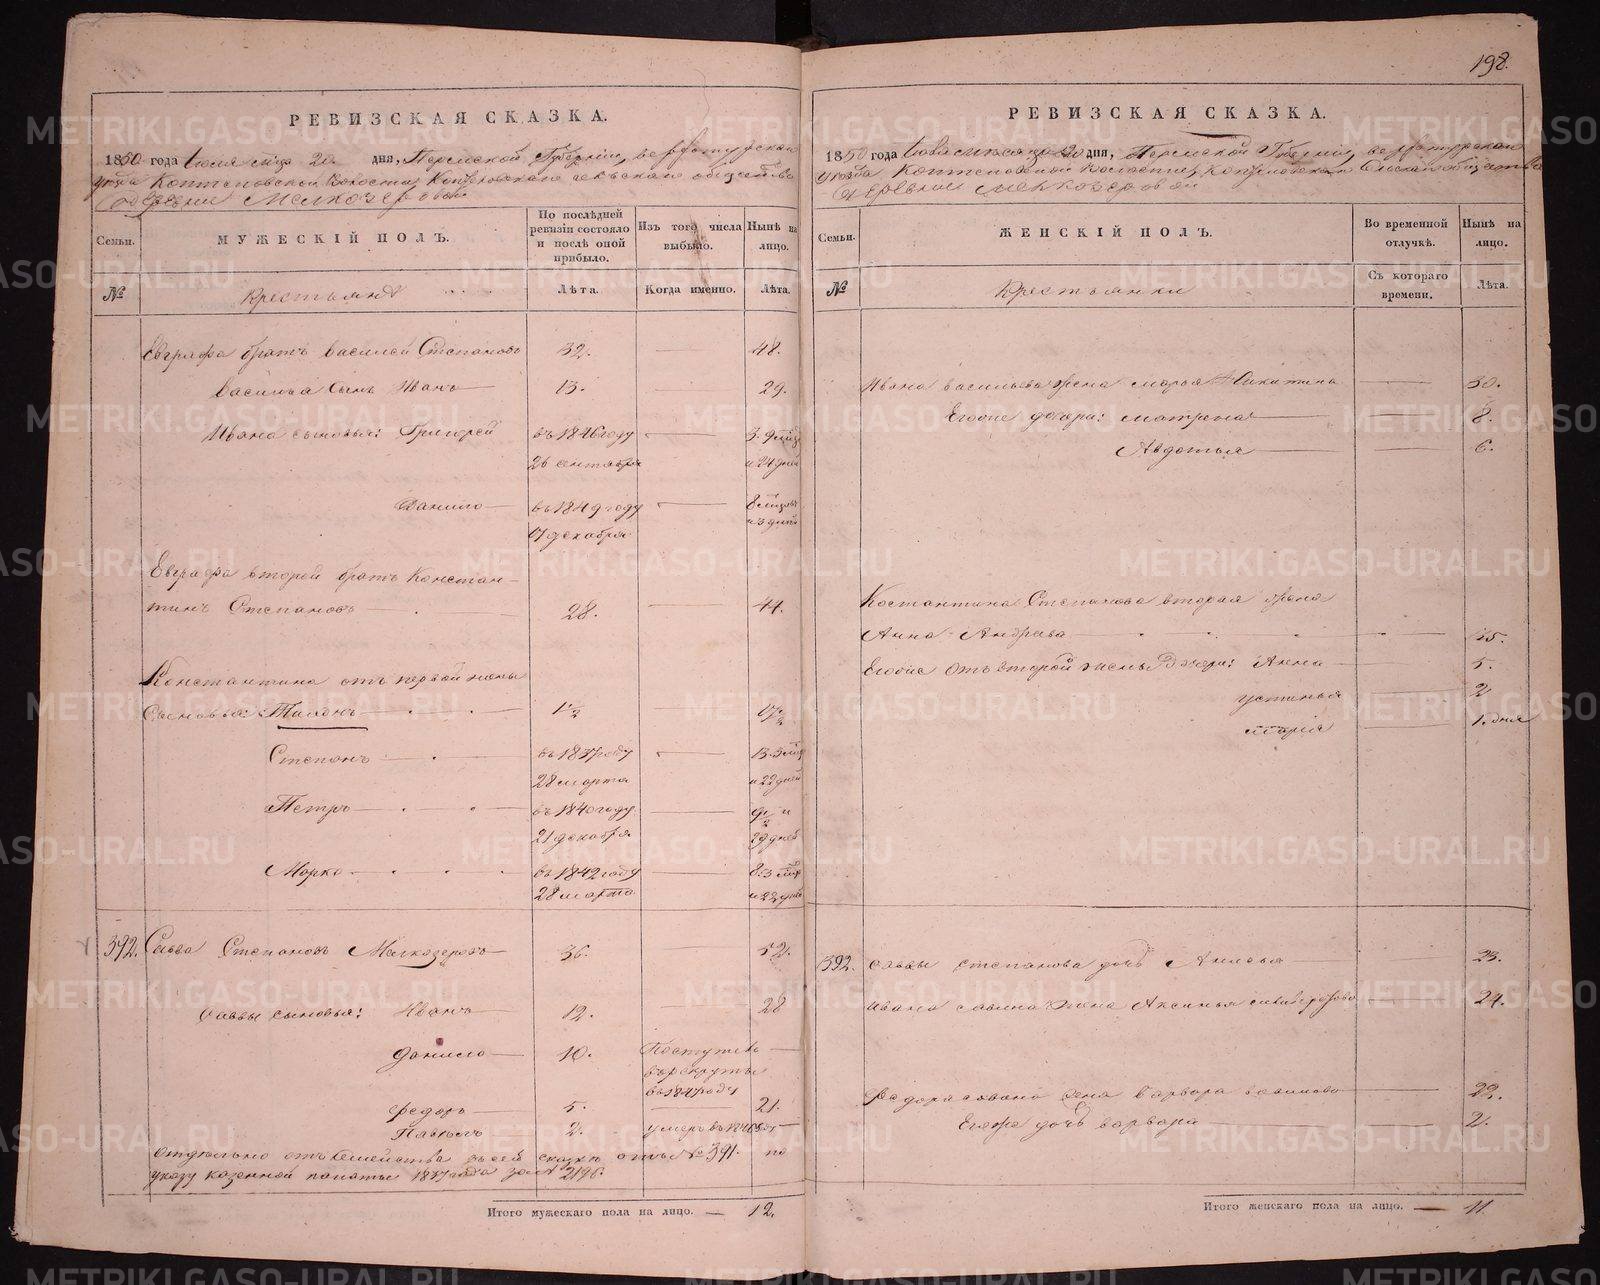 РЕВИЗСКАЯ СКАЗКА.
1850 года Июля м-ца 20 дня, Пермской Губернии, Верхотурскаго
уезда Коптеловской Волости, Коптеловскаго Сельскаго общества
деревни Мелкозеровой
Семьи.
МУЖЕСКІЙ ПОЛЪ.
По послѣдней ревизіи состояло и послѣ оной прибыло.
Изъ того числа выбыло.
Нынѣ на лицо.
№
Крестьянъ
Лѣта.
Когда именно.
Лѣта.
Евграфа братъ Василей Степановъ 32. — 48.
Василья сынъ Иванъ — 13. — 29.
Ивана сыновья: Григорей въ 1846 году — 3. 9 м-цъ
26 сентября и 24 дней
Данило — въ 1849 году — 8 м-цовъ
17 декабря и 3 дня
Евграфа второй братъ Констан-
тинъ Степановъ — 28. — 44.
Константина отъ первой жены
Сыновья: Тиханъ — 1 1/2 — 17 1/2
Степанъ — въ 1837 году — 13. 3 м-ца
28 марта и 22 дней
Петръ — въ 1840 году — 9 1/2 и
21 декабря 29 дней
Марко — въ 1842 году — 8. 3 м-ца
28 марта и 22 дней
392. Савва Степановъ Малкозеровъ — 36. — 52.
Саввы сыновья: Иванъ — 12. — 28
Данило — 10. Поступилъ —
въ рекруты
въ 1847 году
Федоръ — 5. — 21.
Павелъ — 2. умеръ въ
Отдельно отъ семейства въ сей сказке отъ № 391. по
указу казенной палаты 1847 года за № 2196
Итого мужескаго пола на лицо. — 12.
198.
РЕВИЗСКАЯ СКАЗКА.
1850 года Июля м-ца 20 дня, Пермской Губернии, Верхотурскаго
уезда Коптеловской Волости, Коптеловскаго Сельскаго общества
деревни Мелкозеровой
Семьи.
ЖЕНСКІЙ ПОЛЪ.
Во временной отлучкѣ.
Нынѣ на лицо.
№
Крестьянки
Съ котораго времени.
Лѣта.
Ивана Васильева жена Марья Никитина — 30.
Егоже дочери: Матрена — 8.
Авдотья — 6.
Костантина Степанова вторая жена
Анна Андрева —
Егоже отъ второй жены дочери: Анна — 5.
Устинья — 2
Марія — 1. дня
392. Саввы Степанова дочь Анисья — 23.
Ивана Савина жена Аксинья — 24.
Федора Савина жена Варвара — 22.
Егоже дочь Варвара — 2.
Итого женскаго пола на лицо. — 11.
METRIKI.GASO-URAL.RU